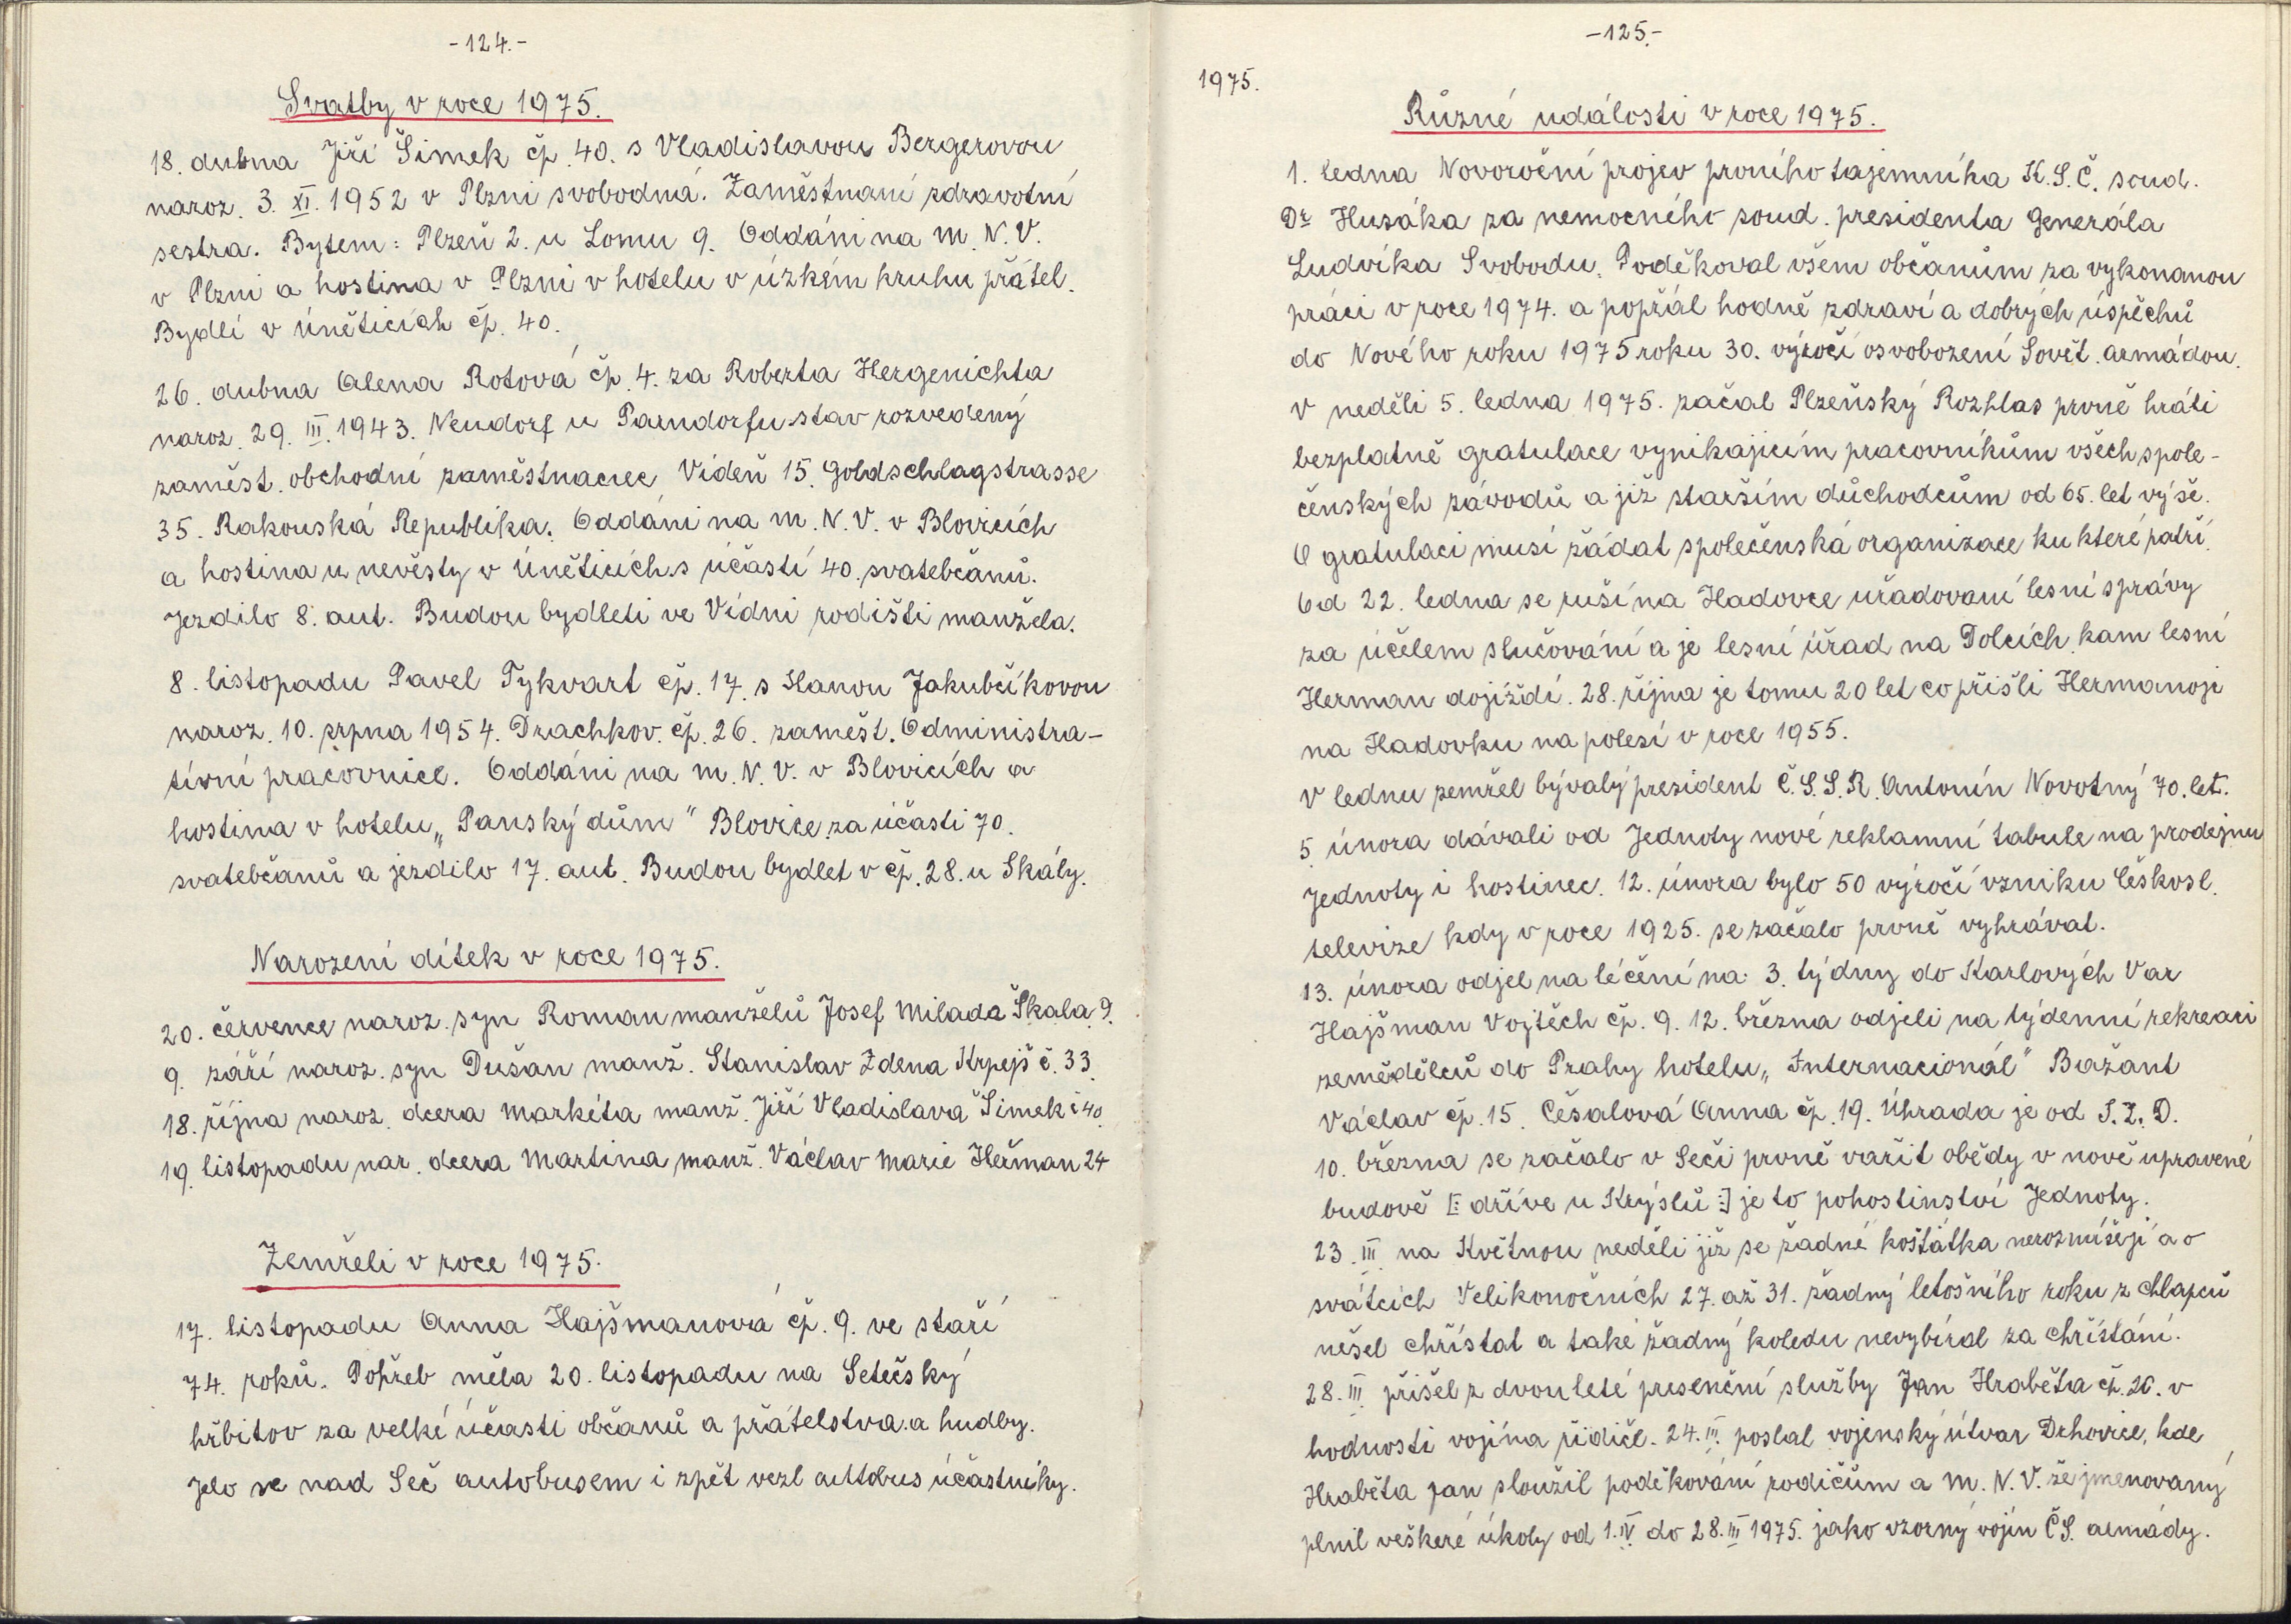 -124.-
Svatby v roce 1975.
18. dubna Jiří Šimek čp. 40. s Vladislavou Bergerovou
naroz. 3. XI. 1952 v Plzni svobodná. Zaměstnaní zdravotní
sestra. Bytem: Plzeň 2. u Lomu 9. Oddáni na M. N. V.
v Plzni a hostina v Plzni v hotelu v úzkém kruhu přátel.
Bydlí v Úněticích čp. 40.
26. dubna Alena Rotová čp. 4. za Roberta Hergenichta
naroz. 29. III. 1943. Neudorf u Parndorfu stav rozvedený
zaměst. obchodní zaměstnanec Vídeň 15. Goldschlagstrasse
35. Rakouská Republika. Oddáni na M. N. V. v Blovicích
a hostina u nevěsty v Úněticích s účastí 40. svatebčanů.
Jezdilo 8. aut. Budou bydleti ve Vídni rodišti manžela.
8. listopadu Pavel Tykvart čp. 17. s Hanou Jakubčíkovou
naroz. 10. srpna 1954. Drachkov. čp. 26. zaměst. Administra-
tívní pracovnice. Oddáni na M. N. V. v Blovicích a
hostina v hotelu „Panský dům" Blovice za účasti 70.
svatebčanů a jezdilo 17. aut. Budou bydlet v čp. 28. u Skály.
Narození dítek v roce 1975.
20. července naroz. syn Roman manželů Josef Milada Škala 9.
9. září naroz. syn Dušan manž. Stanislav Zdena Krpejš č. 33.
18. října naroz. dcera Markéta manž. Jiří Vladislava Šimek č 40.
19. listopadu nar. dcera Martina manž. Václav Marie Heřman 24
Zemřeli v roce 1975.
17. listopadu Anna Hajšmanová čp. 9. ve staří
74. roků. Pohřeb měla 20. listopadu na Setečský
hřbitov za velké účasti občanů a přátelstva. a hudby.
Jelo se nad Seč autobusem i zpět vezl autobus účastníky.
-125.-
1975.
Různé události v roce 1975.
1. ledna Novoroční projev prvního tajemníka K. S. Č. soud.
Dr Husáka za nemocného soud. presidenta Generála
Ludvíka Svobodu. Poděkoval všem občanům za vykonanou
práci v roce 1974. a popřál hodně zdraví a dobrých úspěchů
do Nového roku 1975 roku 30. výročí osvobození Sovět. armádou.
V neděli 5. ledna 1975. začal Plzeňský Rozhlas prvně hráti
bezplatně gratulace vynikajícím pracovníkům všech spole-
čenských závodů a již starším důchodcům od 65. let výše.
O gratulaci musí žádat společenská organizace ku které patří.
Od 22. ledna se ruší na Hadovce uřadovaní lesní správy
za účelem slučování a je lesní úřad na Dolcích, kam lesní
Herman dojíždí. 28. října je tomu 20 let co přišli Hermanoji
na Hadovku na polesí v roce 1955.
V lednu zemřel bývalý president Č. S. S. R. Antonín Novotný 70. let.
5. února dávali od Jednoty nové reklamní tabule na prodejnu
Jednoty i hostinec. 12. února bylo 50 výročí vzniku Českosl.
televize kdy v roce 1925. se začalo prvně vyhrávat.
13. února odjel na léčení na 3. týdny do Karlových Var
Hajšman Vojtěch čp. 9. 12. března odjeli na týdenní rekreaci
zemědělců do Prahy hotelu „Internacionál" Bažant
Václav čp. 15. Češalová Anna čp. 19. Úhrada je od J. Z. D.
10. března se začalo v Seči prvně vařit obědy v nově upravené
budově [: dříve u Krýslů :] je to pohostinství Jednoty.
23. III. na Květnou neděli již se žadné košťátka neroznášejí a o
svátcích Velikonočních 27. až 31. žádný letošního roku z chlapců
nešel chřístat a také žadný koledu nevybíral za chřístání.
28. III. přišel z dvouleté presenční služby Jan Hraběta čp. 20. v
hodnosti vojína řidič. 24. III. poslal vojenský útvar Drhovice, kde
Hraběta Jan sloužil poděkování rodičům a M. N. V. že jmenovaný
plnil veškeré úkoly od 1. IV. do 28. III 1975. jako vzorný vojín ČS. armády.